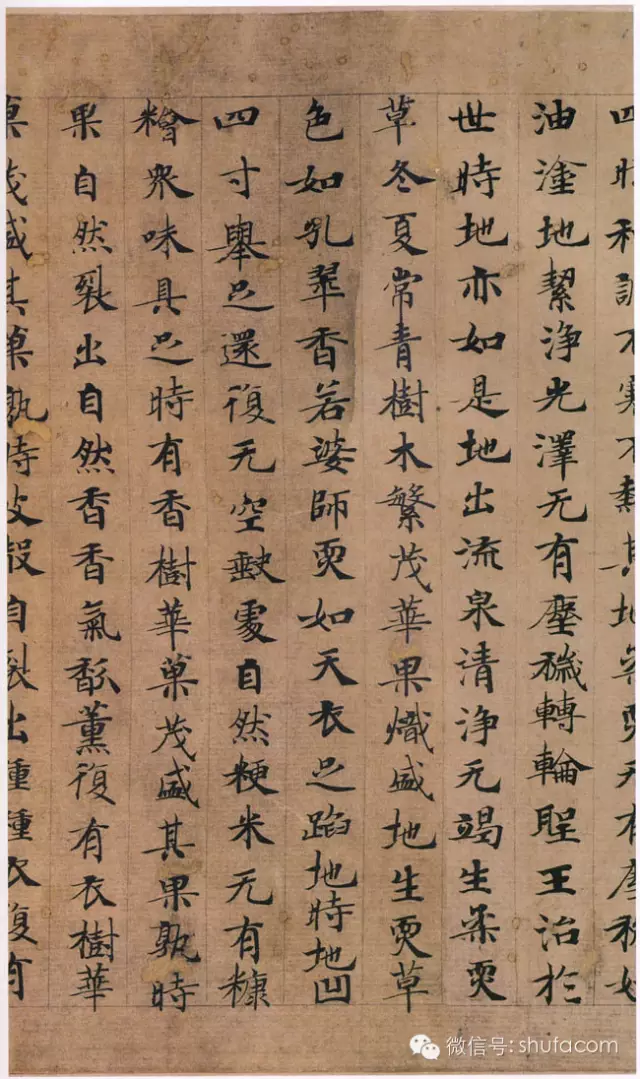 四時和調不寒不熱其地柔耎无有塵穢如
油塗地絜淨光澤无有塵穢轉輪聖王治於
世時地亦如是地出流泉清淨无竭生柔耎
草冬夏常青樹木繁茂華果熾盛地生耎草
色如孔翠香若婆師耎如天衣足蹈地時地凹
四寸舉足還復无空缺處自然粳米无有糠
糩衆味具足時有香樹華菓茂盛其果孰時
果自然裂出自然香香氣馚薰復有衣樹華
菓茂盛其菓孰時皮殼自裂出種種衣復有
微信号: shufacom